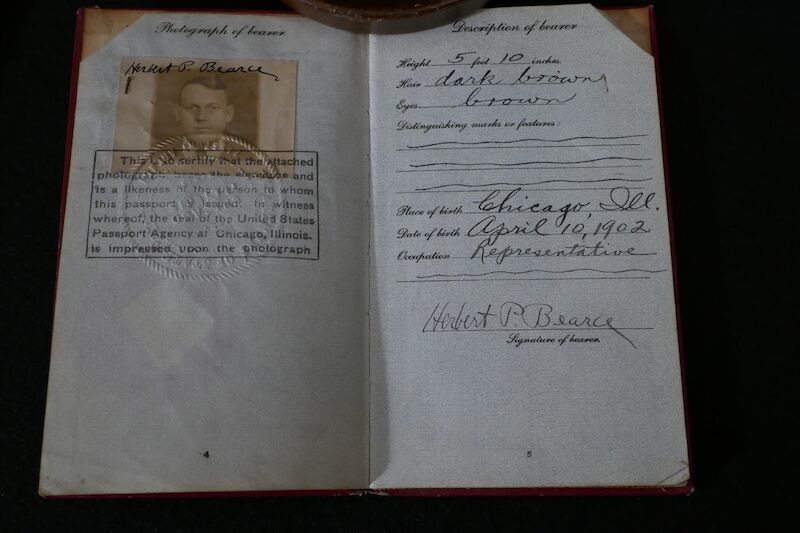 Photograph of bearer
Herbert P. Bearce
This is to certify that the attached
photograph bears the signature and
is a likeness of the person to whom
this passport is issued. In witness
whereof, the seal of the United States
Passport Agency at Chicago, Illinois.
is impressed upon the photograph
4
Description of bearer
Height 5 feet 10 inches
Hair dark brown
Eyes brown
Distinguishing marks or features:
Place of birth Chicago, Ill.
Date of birth April 10, 1902
Occupation Representative
Herbert P. Bearce
Signature of bearer
5